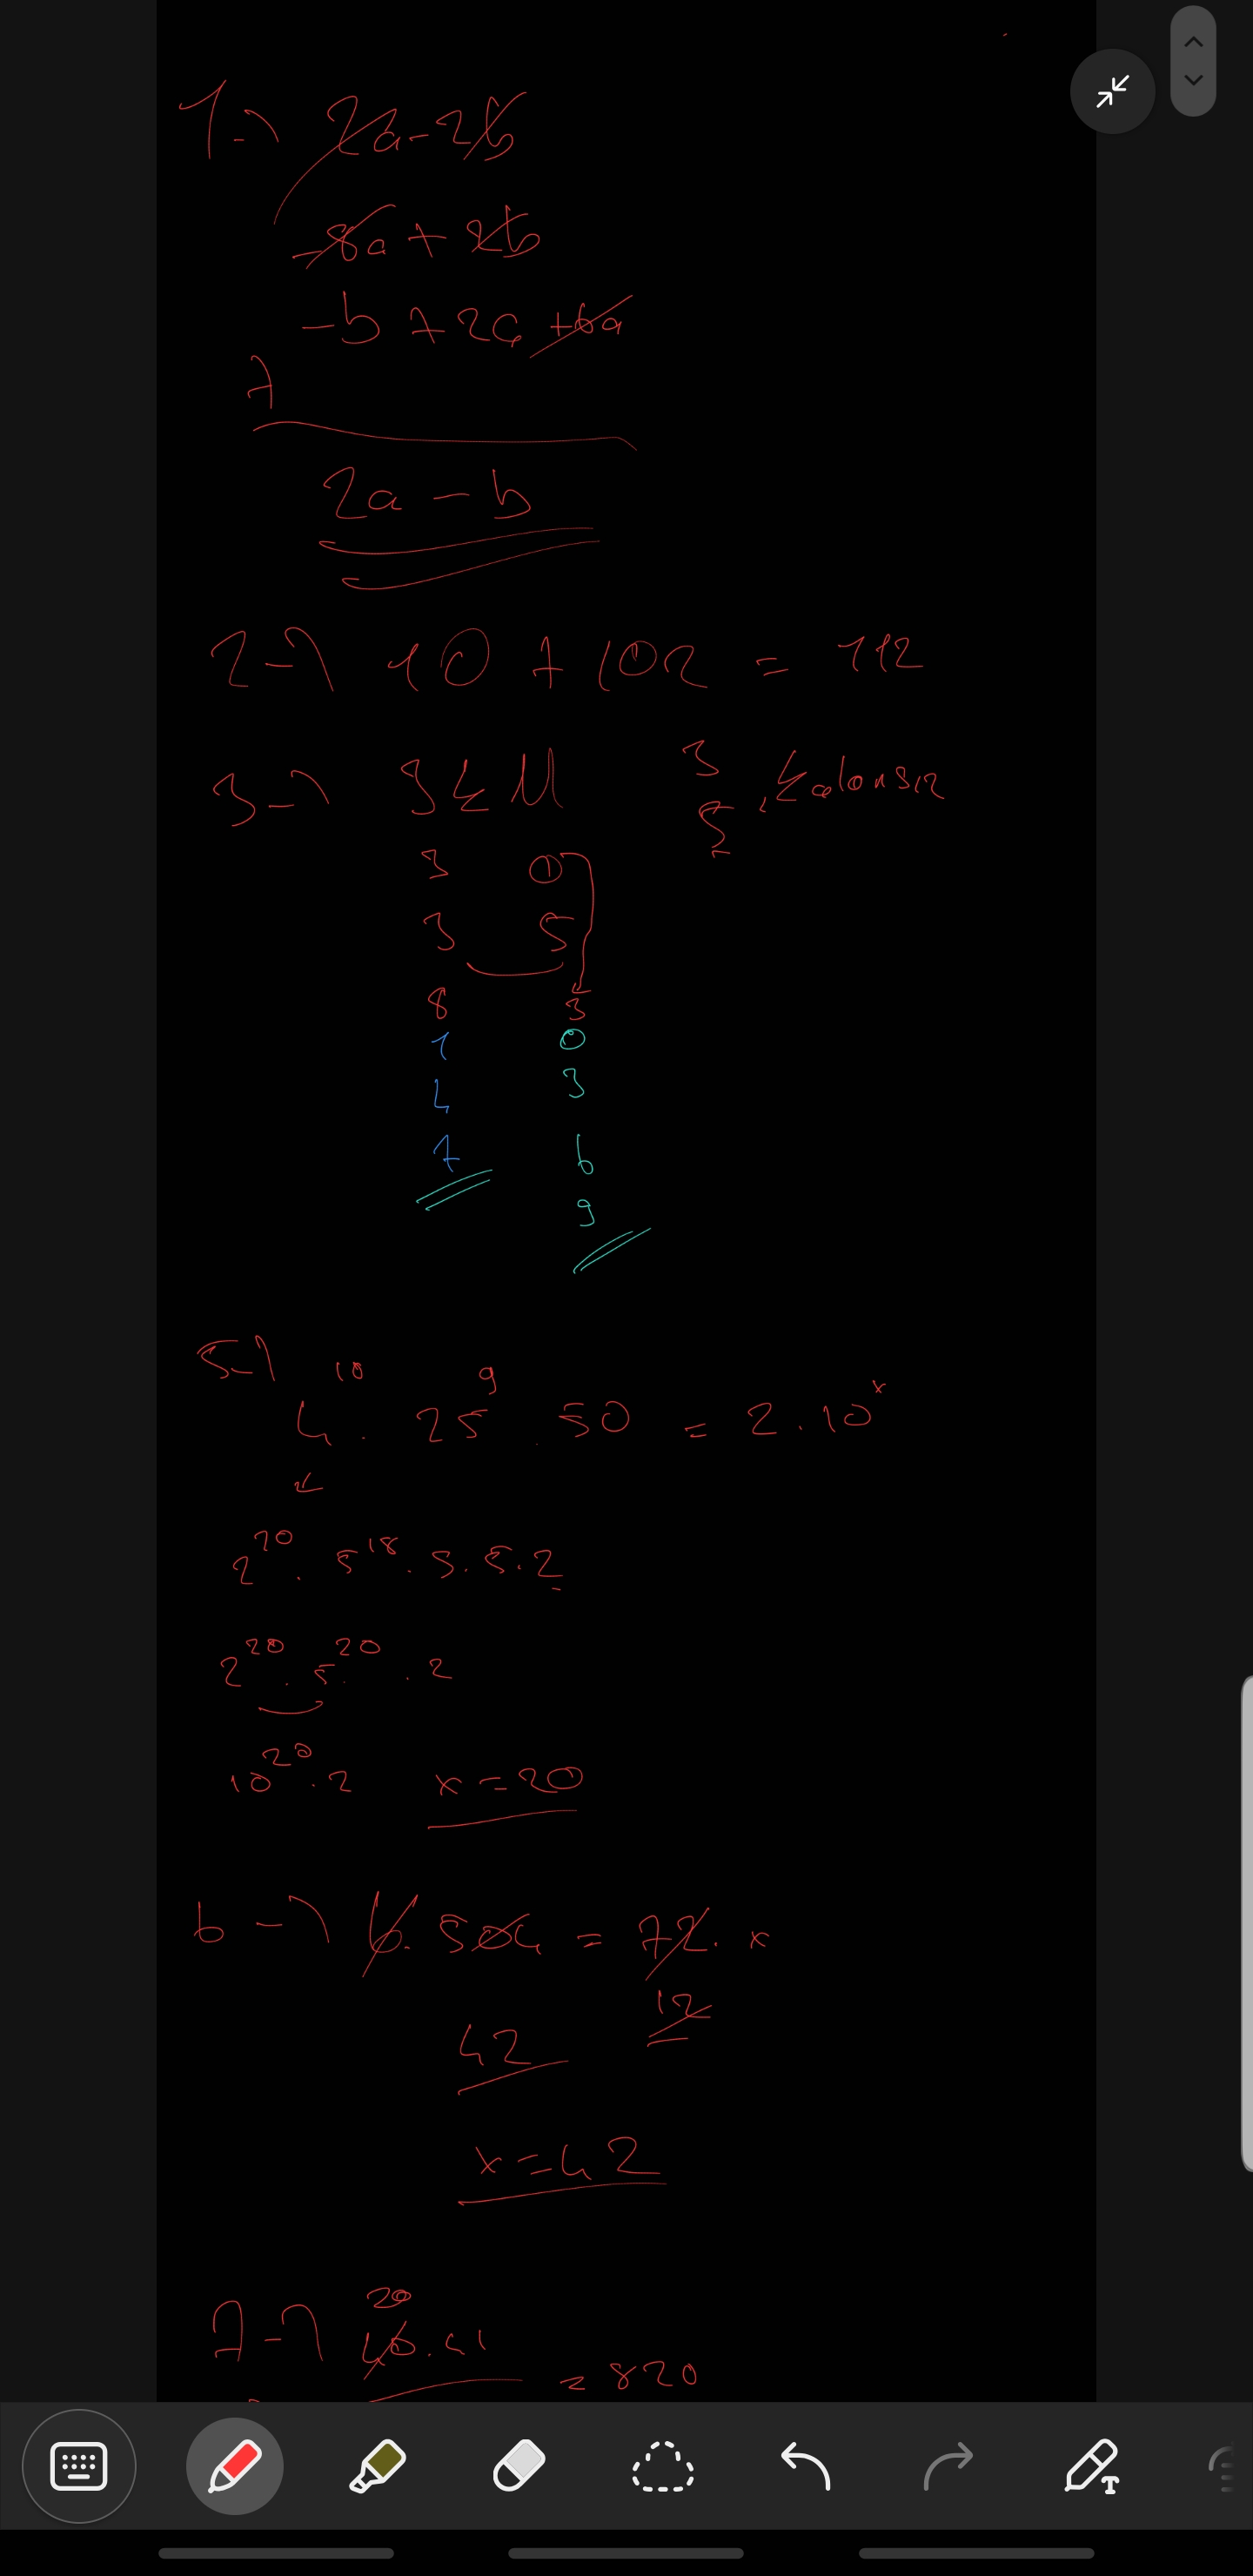 1-) 2a-2b
-8a + 2b
-b + 2a + 6a
+
2a - b
2-) 10 + 102 = 112
3-) 34M 3
5 , kalansız
3 0
3 5
8 3
1 0
4 3
7 6
9
5-) 4¹⁰ . 25⁹ . 50 = 2 . 10ˣ
2²⁰ . 5¹⁸ . 5 . 5 . 2
2²⁰ . 5²⁰ . 2
10²⁰ . 2 x = 20
6-) 6 . 504 = 72 . x
12
42
x = 42
20
7-) 40 . 41
= 820
T